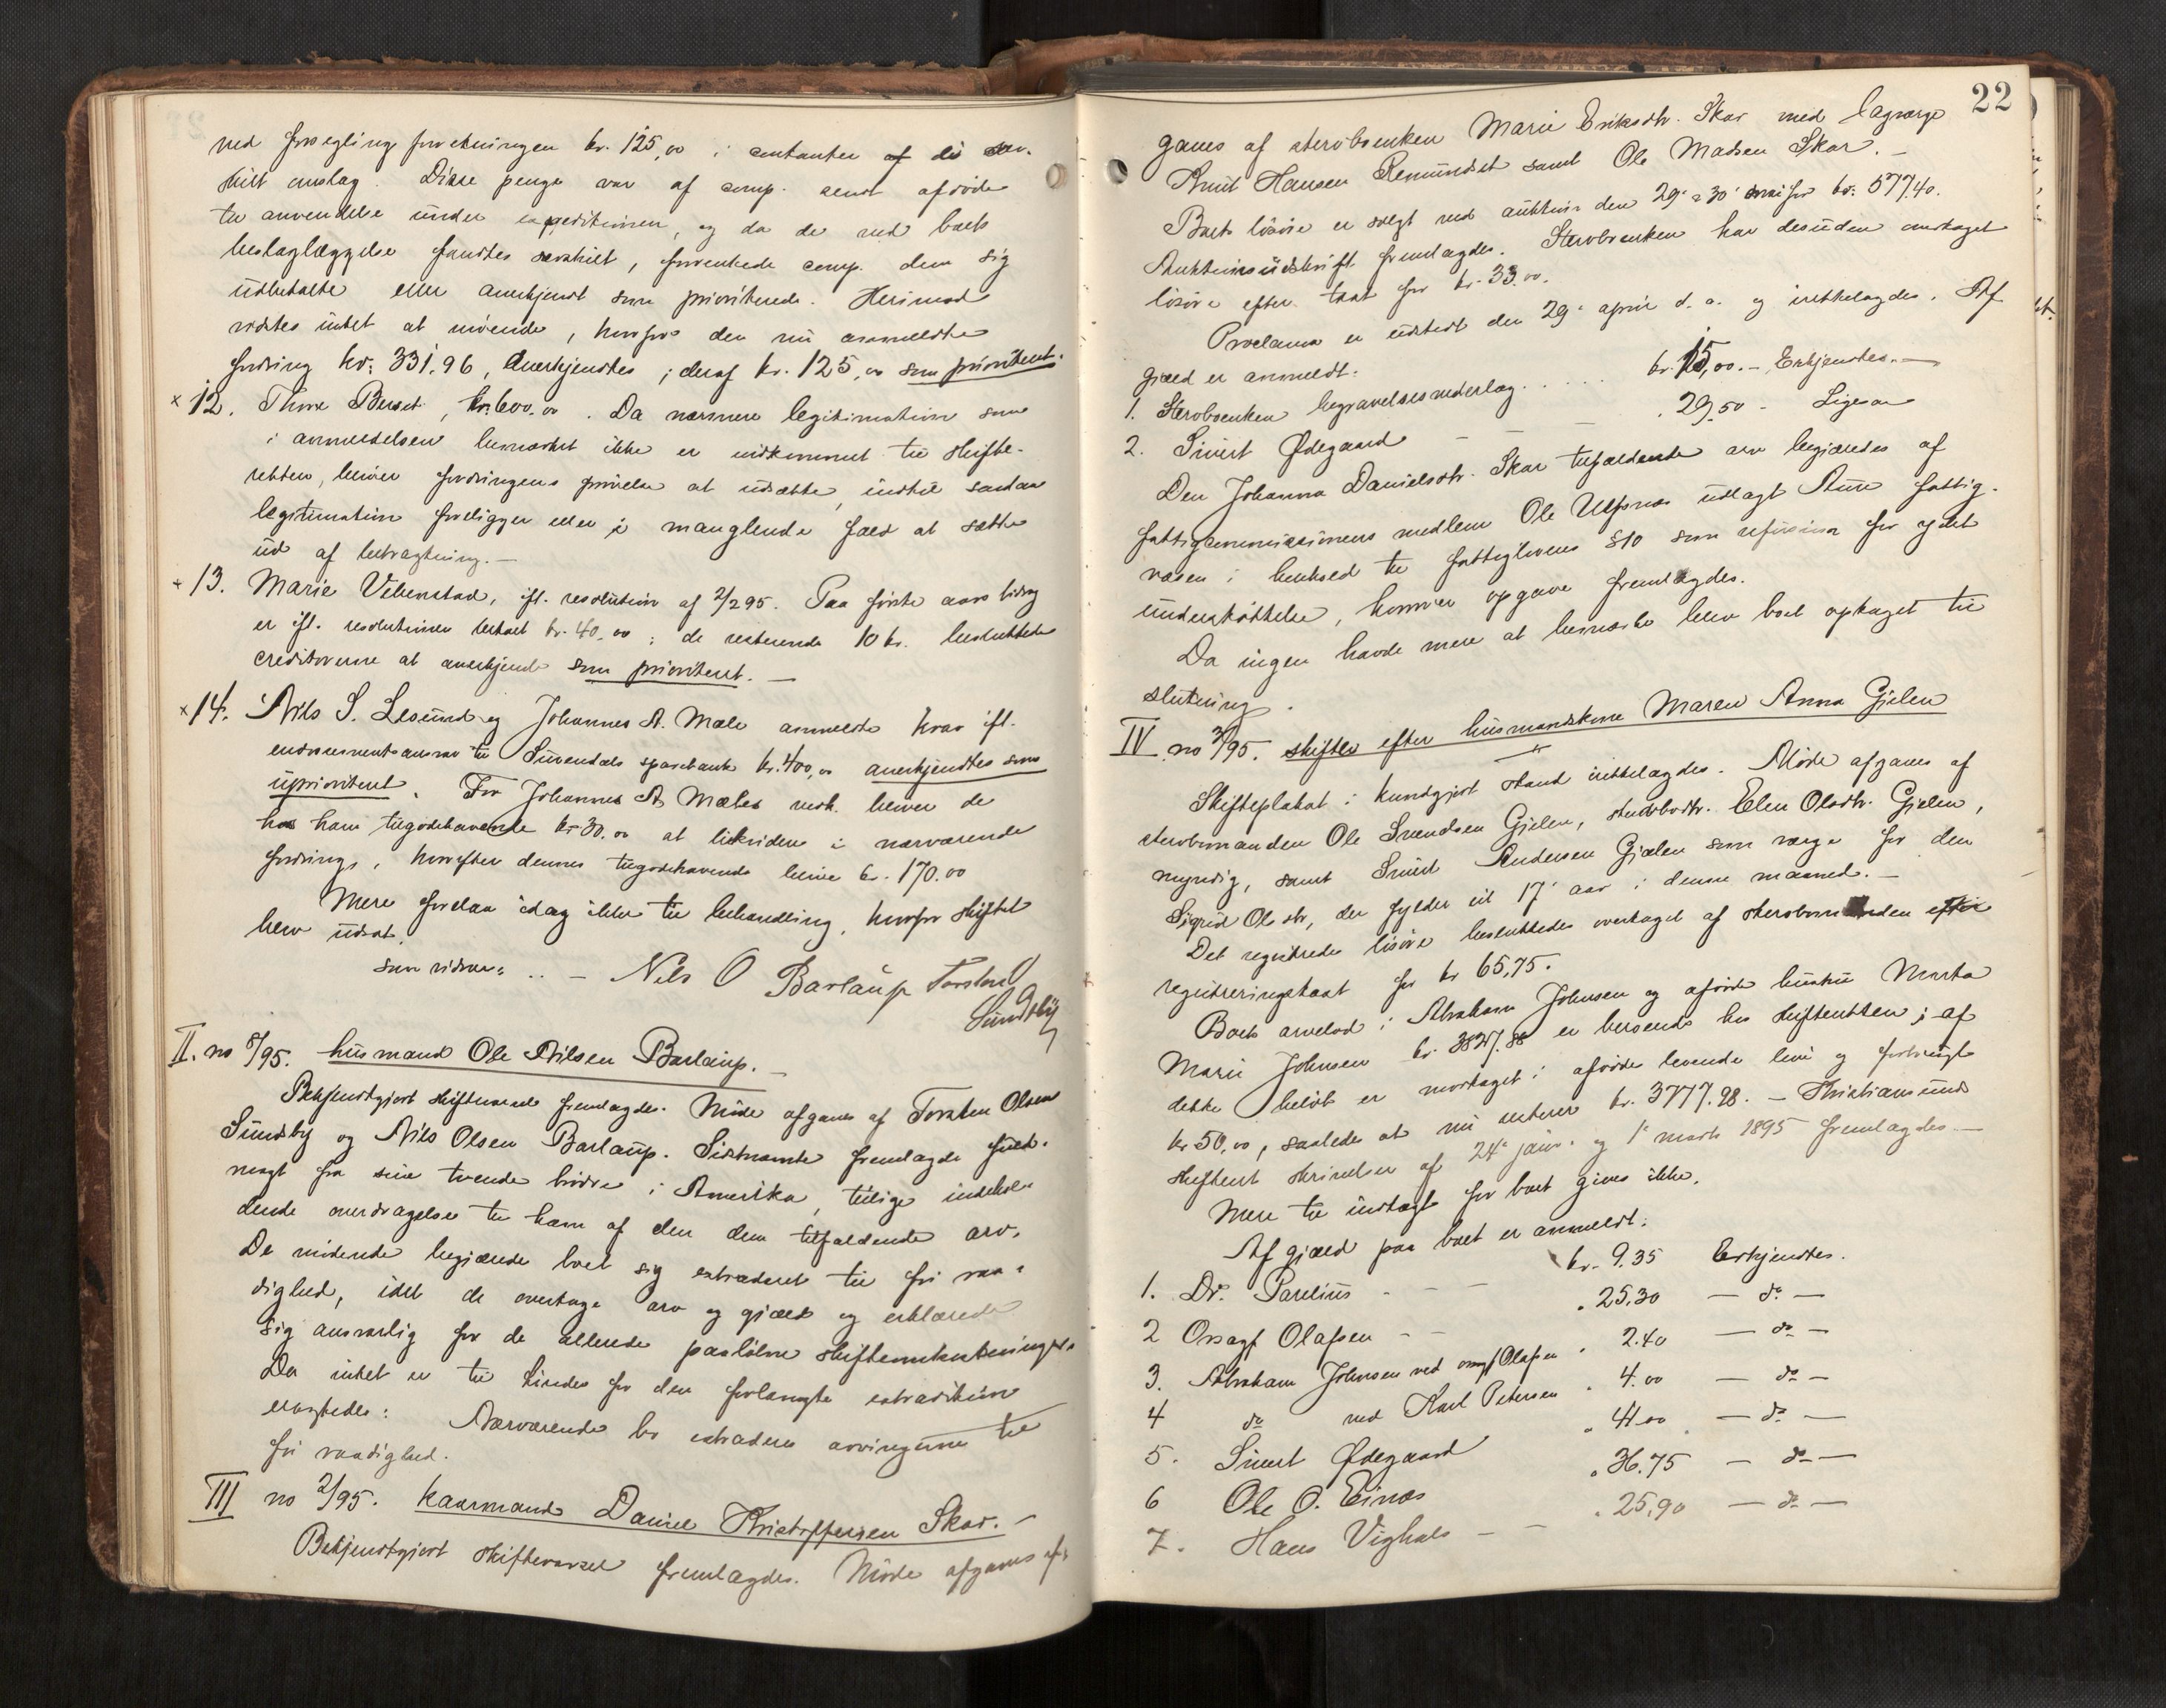 ved forseglingsforretningen kr. 125,00 i contanter af di sær-
skilt omslag. Disse penge var af comp. sendt afdöde
til anvendelse under expeditionen, og da de ved boets
beslaglæggelse fandtes særskilt, forventede comp. dem sig
udbetalte eller anerkjendt som prioriterede. Herimod
vidstes intet at indvende, hvorfor den nu anmeldte
fordring kr. 331.96, anerkjendtes; deraf kr. 125,00 som prioriteret.
× 12. Thore Berset, kr. 600.00. Da nærmere legitimation som
i anmeldelsen bemærket ikke er indkommet til skifte-
retten, bliver fordringens prövelse at udsætte, indtil saadan
legitimation foreligger eller i manglende fald at sætte
ud af betragtning. —
× 13. Marie Vikenstad, ifl. resolution af 2/2 95. Paa förste aars bidrag
er ifl. resolutionen betalt kr. 40,00; de resterende 10 kr. besluttede
creditorerne at anerkjende som prioriteret. —
× 14. Nils S. Lesund og Johannes A. Mæle anmeldte krav ifl.
endossementsansvar til Surendals sparebank kr. 400,00 anerkjendtes som
uprioriteret. For Johannes A. Mæles vedk. bliver de
hos ham tilgodehavende kr. 30.00 at likvidere i nærværende
fordring, hvorefter dennes tilgodehavende bliver kr. 170.00
Mere forelaa idag ikke til behandling, hvorfor skiftet
blev udsat.
som vidner: .. — Nils O Barlaup Torsten O
Sundsby
II. no 8/95. husmand Ole Nilsen Barlaup. —
Bekjendtgjort skiftevarsel fremlagdes. Möde afgaves af Torsten Olsen
Sundsby og Nils Olsen Barlaup. Sidstnævnte fremlagde fuld-
magt fra sine tvende brödre i Amerika, tillige indehol-
dende overdragelse til ham af den dem tilfaldende arv.
De mödende begjærede boet sig extraderet til fri raa-
dighed, idet de overtage arv og gjæld og erklærede
sig ansvarlig for de allerede paalöbne skifteomkostninger.
Da intet er til hinder for den forlangte extradition
eragtedes: Nærværende bo extraderes arvingerne til
fri raadighed.
III no 2/95. kaarmand Daniel Kristoffersen Skar. —
Bekjendtgjort skiftevarsel fremlagdes. Möde afgaves af-
22
gaves af stervboenken Marie Eriksdtr. Skar med lagværge
Knut Hansen Remundset samt Ole Madsen Skar. —
Boets lösöre er solgt ved auktion den 29' & 30' mai for kr. 577.40.
Auktionsudskrift fremlagdes. Stervboenken har desuden modtaget
lösöre efter takst for kr. 33.00.
Proclama er udstedt den 29' april d. a. og irettelagdes. Af
gjæld er anmeldt:
1. Stervboenken begravelsesvederlag . . . . . kr. 15,00. — Erkjendtes. —
2. Sivert Ødegaard — — — . 29.50 - Ligesaa
Den Johanna Danielsdtr. Skar tilfaldende arv begjæredes af
fattigcommissionens medlem Ole Ulfsnes udlagt Aure fattig-
væsen i henhold til fattiglovens §10 som refusion for ydet
understöttelse, hvorover opgave fremlagdes.
Da ingen havde mere at bemærke blev boet optaget til
slutning.
IV. no 3/95. skiftet efter husmandskone Maren Anna Gjelen
Skifteplakat i kundgjort stand irettelagdes. Möde afgaves af
stervbomanden Ole Svendsen Gjelen, stervbodtr. Elen Olsdtr. Gjelen,
myndig, samt Sivert Andersen Gjelen som værge for den
Sigrid Olsdtr, der fylder sit 17' aar i denne maaned. —
Det registrerede lösöre besluttedes overtaget af stervbomanden efter
registreringstaxt for kr 65,75.
Boets arvelod i Abraham Johnsen og afdöde hustru Marta
Marie Johnsen kr. 3827.88 er beroende hos skifteretten; af
dette belöb er modtaget i afdödes levende live og forbrugt
kr 50,00, saaledes at nu resterer kr. 3777.98. — Kristiansunds
skifterets skrivelser af 24' janr. og 1' marts 1895 fremlagdes. —
Mere til indtægt for boet gives ikke.
Af gjæld paa boet er anmeldt:
1. Dr. Parelius - — — kr. 9.35 Erkjendtes.
2 Orsagf Olafsen - - . 25.30 — do —
3. Abraham Johnsen ved orsagf Olafsen . 2.40 — do —
4 do ved Karl Petersen . 4.00 — do —
5. Sivert Ødegaard . 41.00 — do —
6 Ole O. Einæs . 36.75 — do —
7. Hans Vighals — — . 25.90 — do —